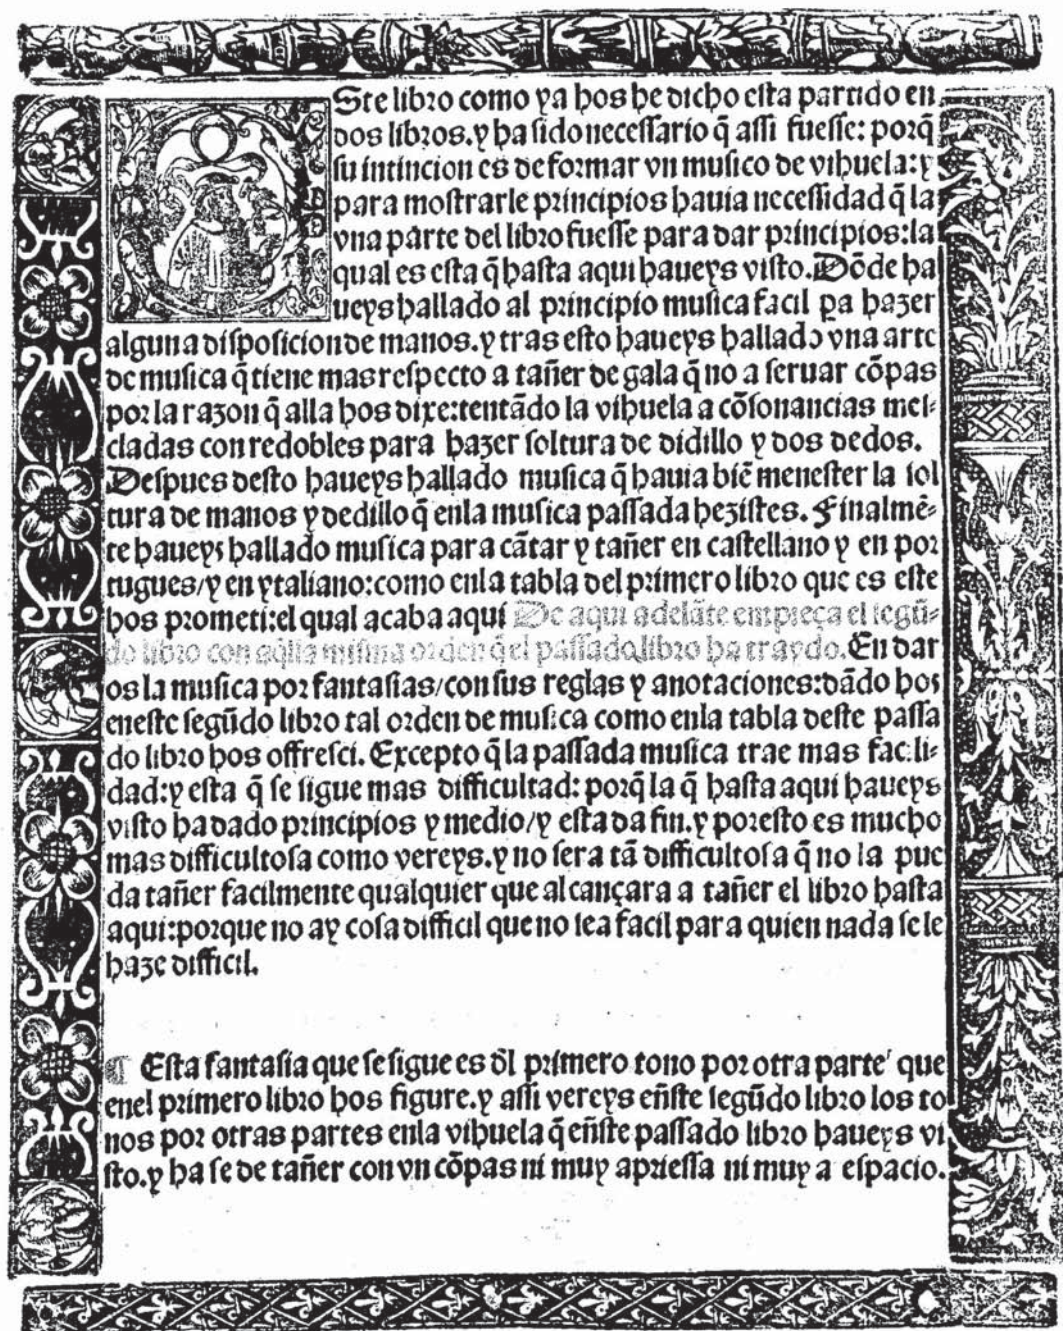 Este libro como ya hos he dicho esta partido en
dos libros. y ha sido necessario q̃ assi fuesse: porq̃
su intincion es de formar vn musico de vihuela: y
para mostrarle principios hauia necessidad q̃ la
vna parte del libro fuesse para dar principios: la
qual es esta q̃ hasta aqui haueys visto. Dõde ha
ueys hallado al principio musica facil pa hazer
alguna disposicion de manos. y tras esto haueys hallado vna arte
de musica q̃ tiene mas respecto a tañer de gala q̃ no a seruar cõpas
por la razon q̃ alla hos dixe: tentãdo la vihuela a cõsonancias mez-
cladas con redobles para hazer soltura de didillo y dos dedos.
Despues desto haueys hallado musica q̃ hauia biẽ menester la sol
tura de manos y dedillo q̃ enla musica passada hezistes. Finalmẽ-
te haueys hallado musica para cãtar y tañer en castellano y en por
tugues/ y en ytaliano: como enla tabla del primero libro que es este
hos prometi: el qual acaba aqui De aqui adelãte empieça el segũ-
do libro con aq̃lla misma orden q̃ el passado libro ha traydo. En dar
os la musica por fantasias/ con sus reglas y anotaciones: dãdo hos
eneste segũdo libro tal orden de musica como enla tabla deste passa
do libro hos offresci. Excepto q̃ la passada musica trae mas facili-
dad: y esta q̃ se sigue mas difficultad: porq̃ la q̃ hasta aqui haueys
visto ha dado principios y medio/ y esta da fin. y poresto es mucho
mas difficultosa como vereys. y no sera tã difficultosa q̃ no la pue
da tañer facilmente qualquier que alcançara a tañer el libro hasta
aqui: porque no ay cosa difficil que no sea facil para quien nada se le
haze difficil.
¶ Esta fantasia que se sigue es d̃l primero tono por otra parte que
enel primero libro hos figure. y assi vereys eñste segũdo libro los to
nos por otras partes enla vihuela q̃ eñste passado libro haueys vi
sto. y ha se de tañer con vn cõpas ni muy apriessa ni muy a espacio.